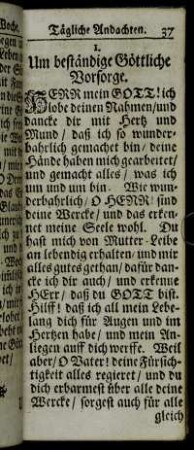 Tägliche Andachten. 37
1.
Um beständige Göttliche
Vorsorge.
HERR mein GOTT! ich
lobe deinen Nahmen/und
dancke dir mit Hertz und
Mund/ daß ich so wunder-
bahrlich gemachet bin/ deine
Hände haben mich gearbeitet/
und gemacht alles/ was ich
um und um bin. Wie wun-
derbahrlich/ O HENR! sind
deine Wercke/ und das erken-
net meine Seele wohl. Du
hast mich von Mutter-Leibe
an lebendig erhalten/ und mir
alles gutes gethan/ dafür dan-
cke ich dir auch/ und erkenne
HErr/ daß du GOTT bist.
Hilff! daß ich all mein Lebe-
lang dich für Augen und im
Hertzen habe/ und mein An-
liegen auff dich werffe. Weil
aber/ O Vater! deine Fürsich-
tigkeit alles regieret/ und du
dich erbarmest über alle deine
Wercke/ sorgest auch für alle
gleich
Woche.